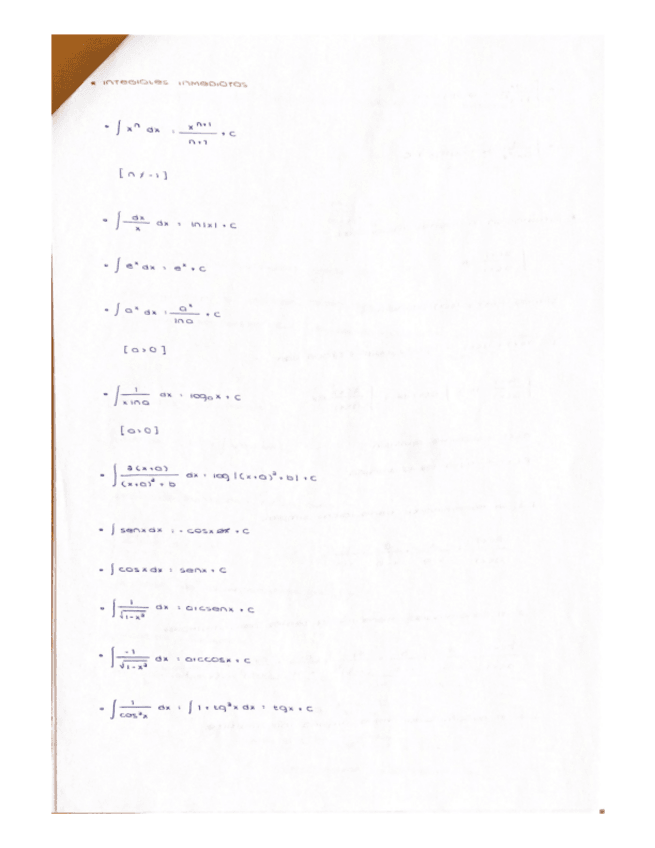 * INTEGRALES INMEDIATAS
- ∫ xⁿ dx = xⁿ⁺¹ / n+1 + C
[n ≠ -1]
- ∫ dx/x dx = ln|x| + C
- ∫ eˣ dx = eˣ + C
- ∫ aˣ dx = aˣ / ln a + C
[a > 0]
- ∫ 1 / x ln a dx = logₐ x + C
[a > 0]
- ∫ 2(x+a) / (x+a)² + b dx = log |(x+a)² + b| + C
- ∫ senx dx = - cosx + C
- ∫ cosx dx = senx + C
- ∫ 1 / √1-x² dx = arcsenx + C
- ∫ -1 / √1-x² dx = arccosx + C
- ∫ 1 / cos²x dx = ∫ 1 + tg²x dx = tgx + C